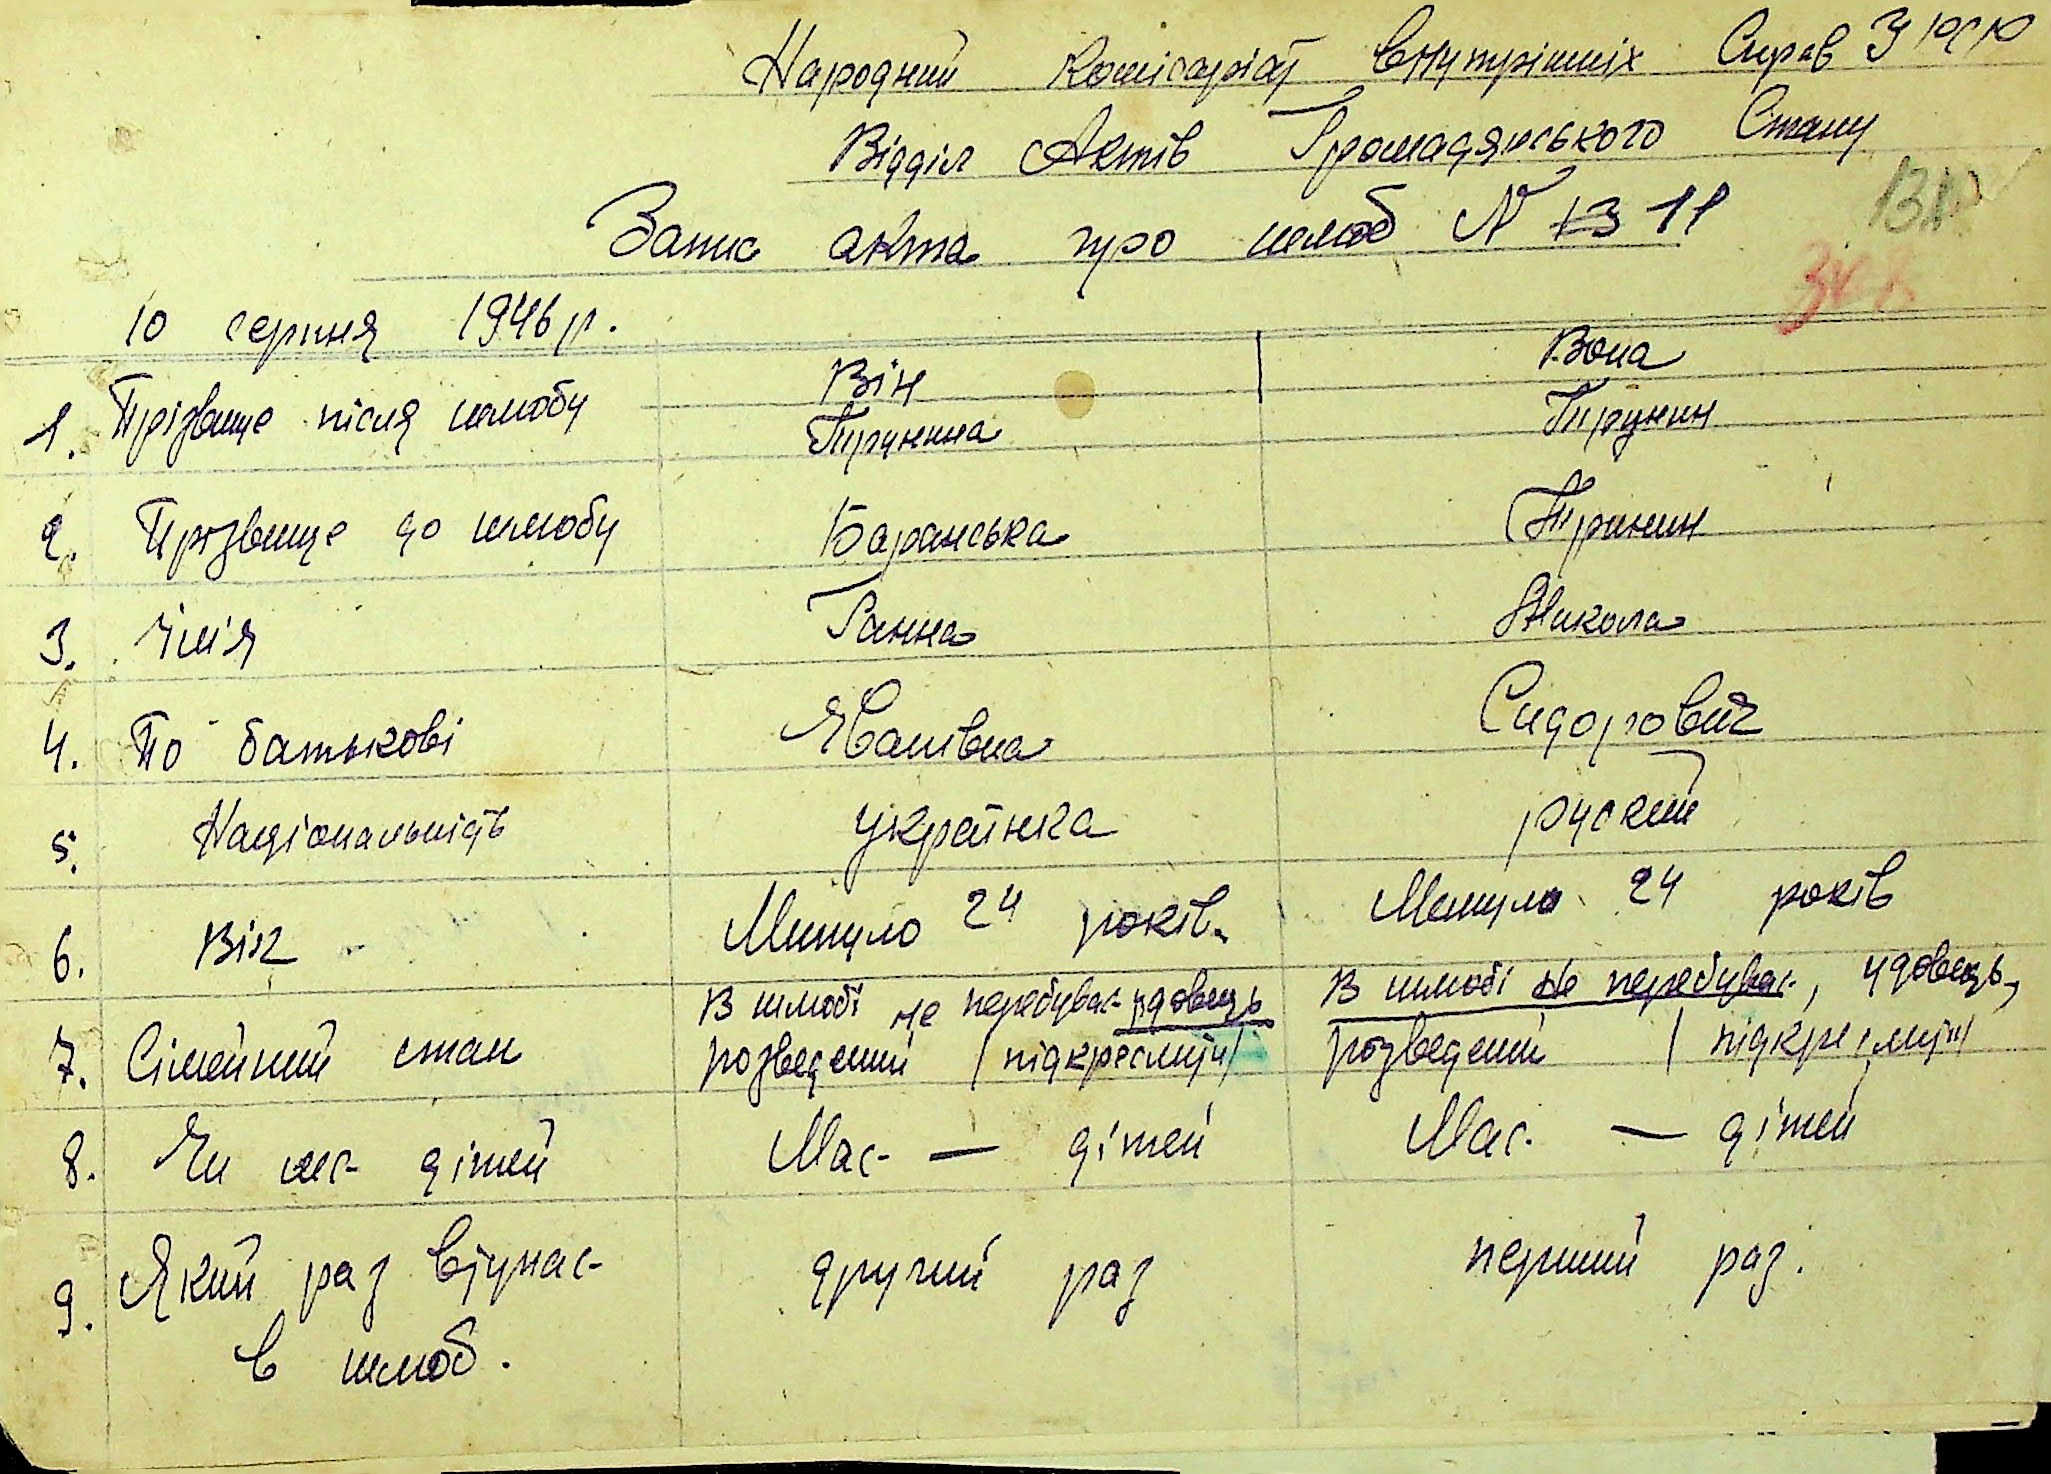 Народний Комісаріат Внутрішніх Справ УРСР
Відділ Актів Громадянського Стану
Запис акта про шлюб N 13 11
10 серпня 1946 р.
Він Вона
1. Прізвище після шлюбу
2. Прізвище до шлюбу Баранська
3. Імія Ганна Микола
4. По батькові Іванівна Сидорович
5. Національність українка руский
6. Вік Минуло 24 років. Минуло 24 років
7. Сімейний стан В шлюбі не перебуває удовець В шлюбі не перебуває, удовець,
розведений (підкреслити) розведений (підкреслити)
8. Чи має дітей Має — дітей Має — дітей
9. Який раз вступає другий раз перший раз.
в шлюб.